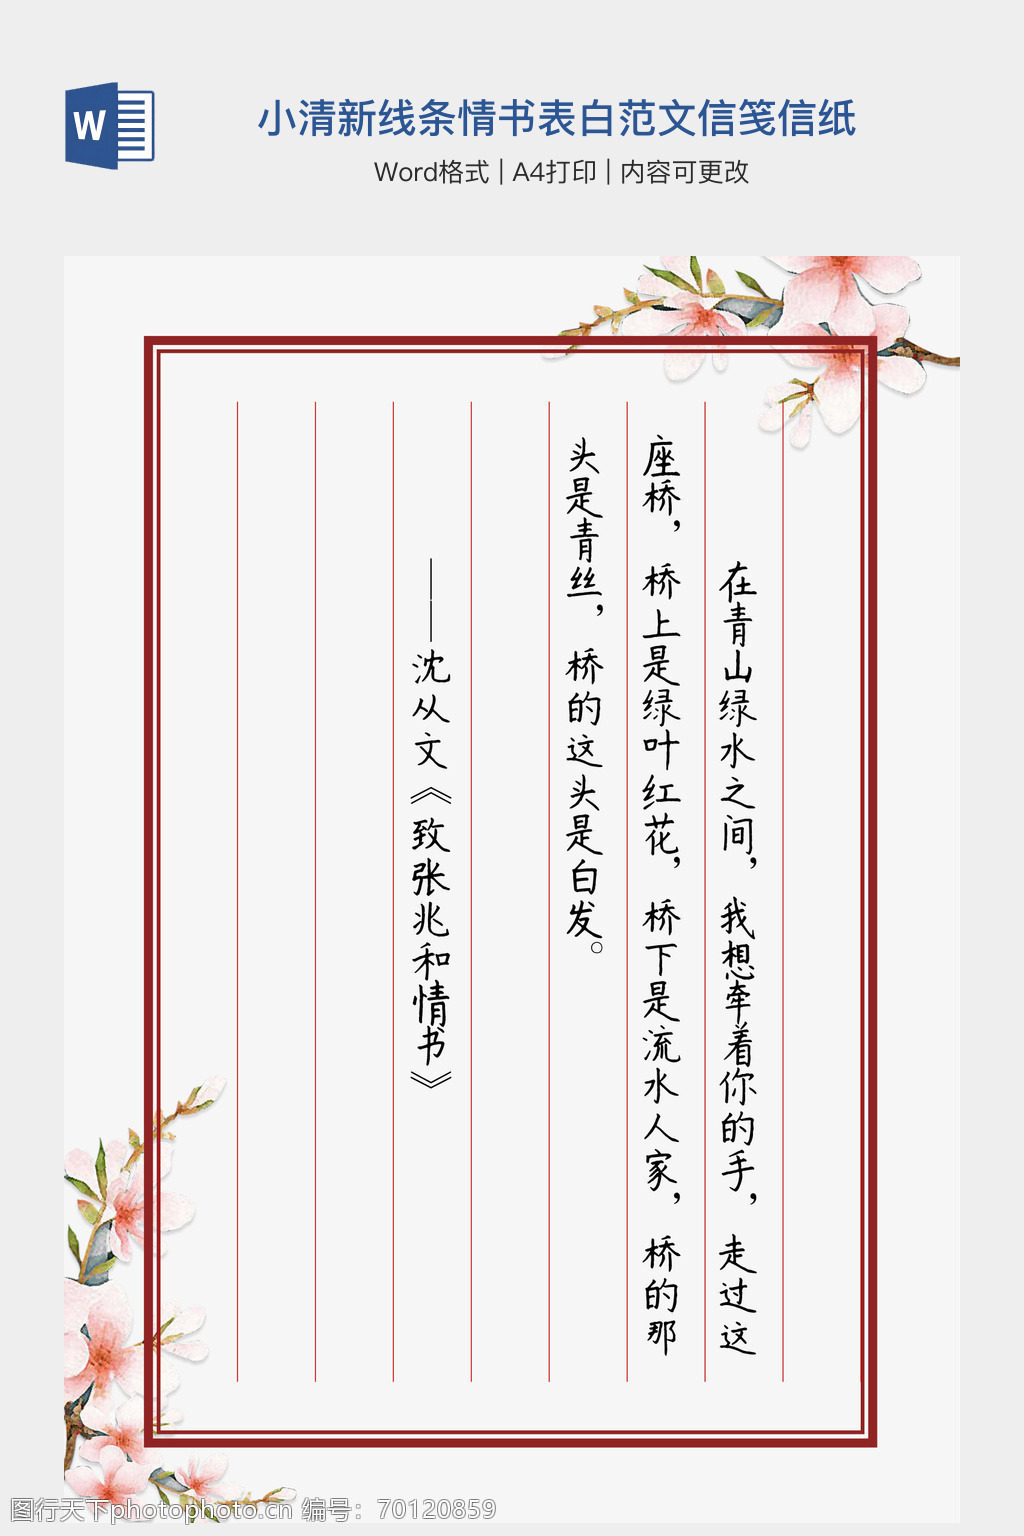 W
小清新线条情书表白范文信笺信纸
Word格式 | A4打印 | 内容可更改
在青山绿水之间，我想牵着你的手，走过这
座桥，桥上是绿叶红花，桥下是流水人家，桥的那
头是青丝，桥的这头是白发。
——沈从文《致张兆和情书》
图行天下photophoto.cn 编号：70120859